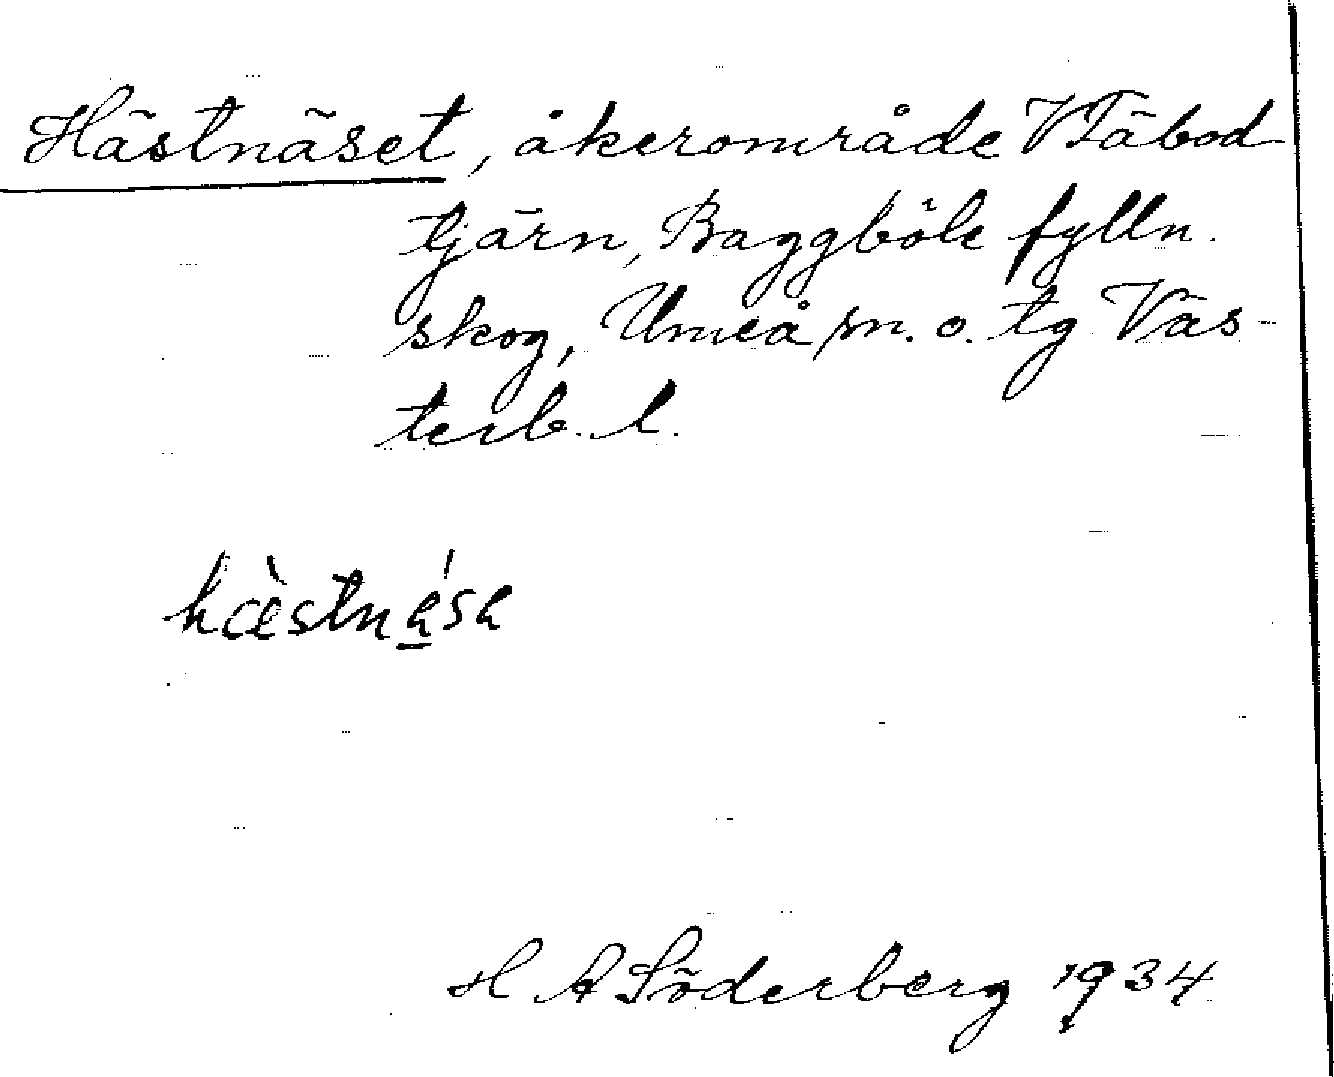 Hästnäset, åkerområde V Täbod
tjärn, Baggböle fylln.
skog, Umeå sn. o. tg Väs-
terb. l.
hæ̀stnása
H A Söderberg 1934